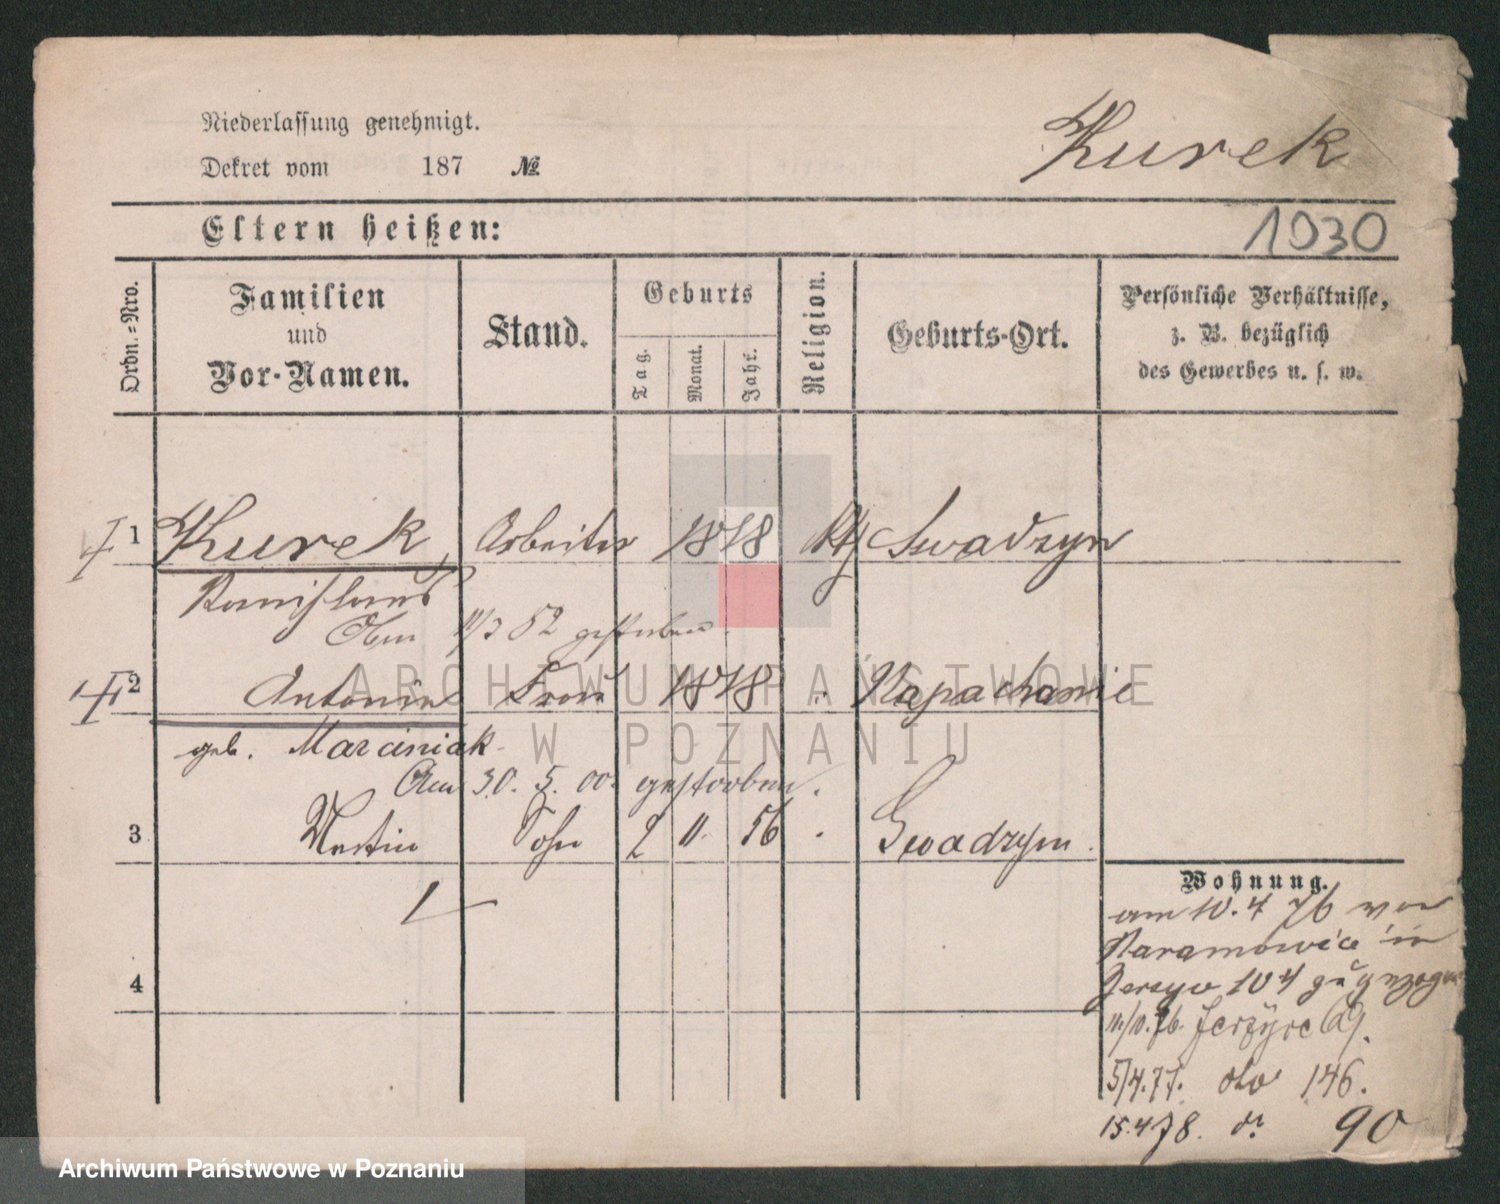 Niederlassung genehmigt.
Kurek
Dekret vom 187 №
Eltern heißen:
1030
Ordn.-Nro.
Familien
und
Vor-Namen.
Stand.
Geburts
Tag.
Monat.
Jahr.
Religion.
Geburts-Ort.
Persönliche Verhältnisse,
z. B. bezüglich
des Gewerbes u. s. w.
1 Kurek, Arbeiter 1818 Swadzyn
Stanislaus
11/3 82 gestorben.
2 Antonine Frau 1818 Napachanie
geb. Marciniak
Am 30. 5. 00. gestorben.
3 Martin Sohn 2 11. 56 Swadzym.
4
Wohnung.
am 10. 4 76 von
Naramowice in
Jerzyce 104 zugezogen
11/10. 76. Jerzyce 69.
5/4. 77. dto 146.
15. 4 78. do 90
ARCHIWUM PAŃSTWOWE
W POZNANIU
Archiwum Państwowe w Poznaniu